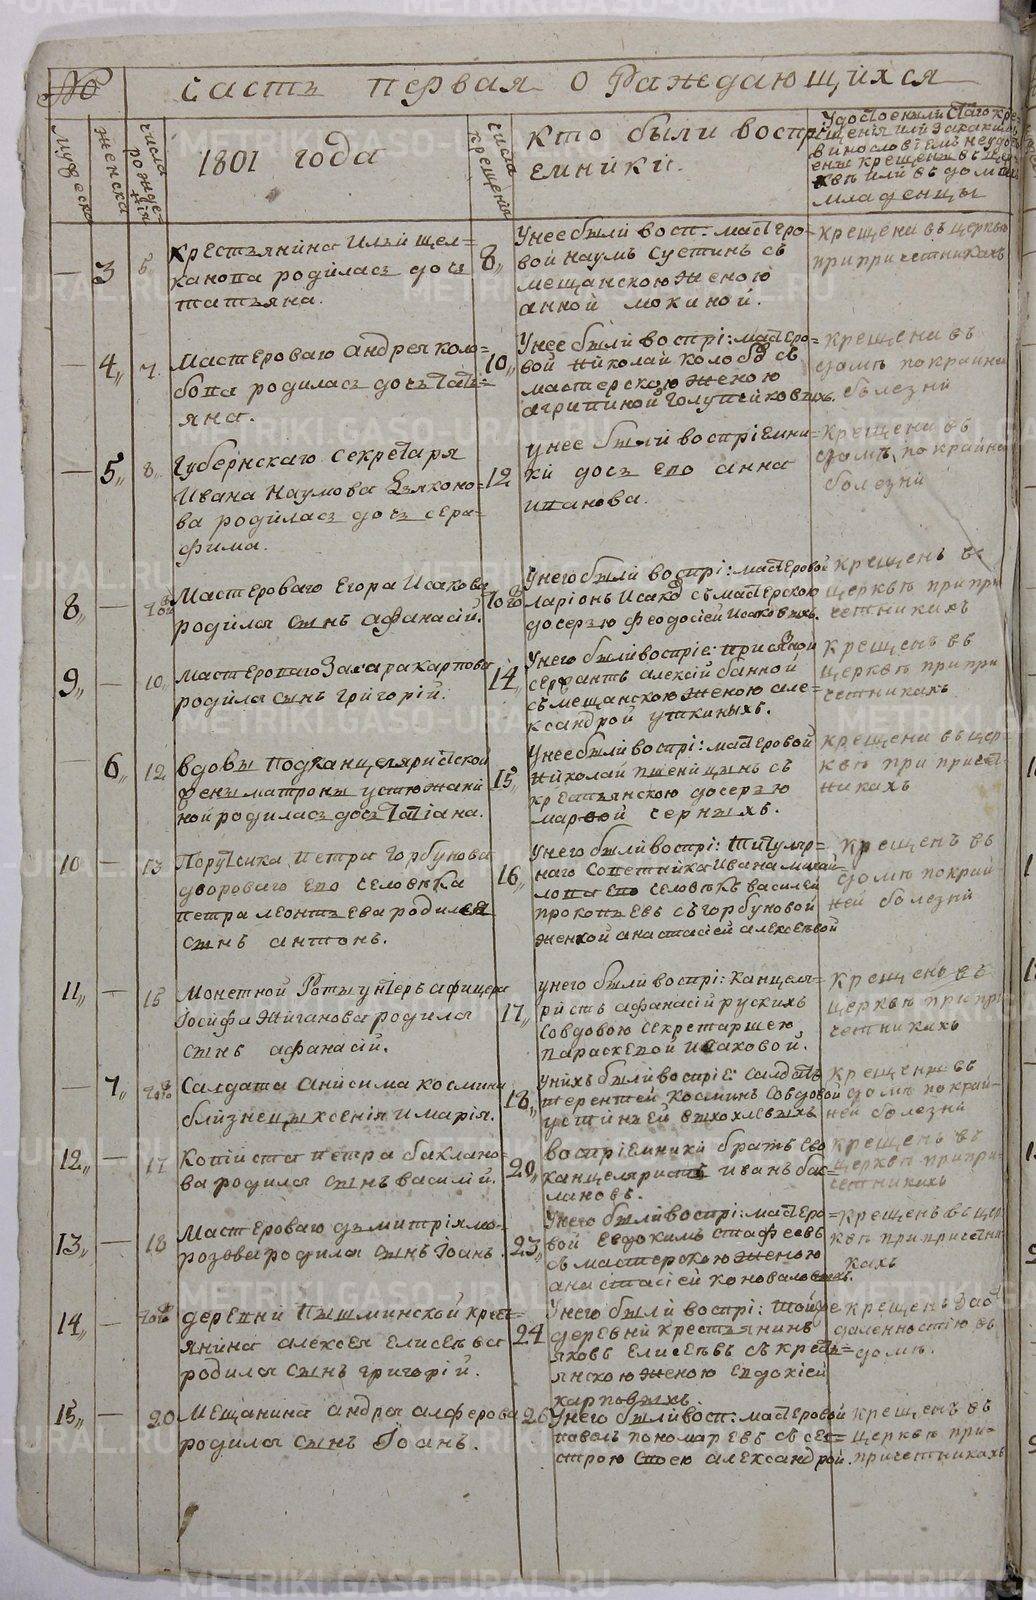 № часть первая о Раждающихся
мужеска
женска
числа рожде-
нія
1801 года
числа крещенія
кто были воспрі-
емники.
младенцы
3
5
крестьянина Ильи щел-
канова родилась дочь
татьяна.
8
У нее были восп: мастеро-
вой наумъ сустинъ съ
мещанскою женою
анной мокиной.
крещена въ церкви
при причетникахъ
4
7
Мастероваго андрея коло-
бова родилась дочь тать-
яна.
10
У нее были воспрі: мастеро-
вой николай колобовъ съ
мастерскою женою
агрипиной голупчиковыхъ.
крещена въ
домѣ по крайней
болезни
5
8
Губернскаго секретаря
Ивана Наумова Дьяконо-
ва родилась дочь сера-
фима.
12
у нее были воспріемни-
ки дочь ево анна
иванова.
крещена въ
домѣ, по крайней
болезни
8
Мастероваго Егора Исакова
родился сынъ афанасій.
У него были воспрі: мастеровой
ларіонъ Исаковъ съ мастерскою
дочерью феодосіей Исаковыхъ.
крещенъ въ
церквѣ при при-
четникахъ
9
10
мастероваго Захара карпова
родился сынъ григорій.
14
У него были воспріе: присяжной
сержантъ алексій банной
съ мещанскою женою але-
ксандрой уткиныхъ.
крещенъ въ
церквѣ при при-
четникахъ
6
12
вдовы подканцеляристской
жены матроны устюжани-
ной родилась дочь татіана.
15
У нее были воспрі: мастеровой
николай пшеницынъ съ
крестьянскою дочерью
марфой черныхъ.
крещена въ цер-
квѣ при причет-
никахъ
10
13
Порутчика петра горбунова
двороваго ево человѣка
петра леонтьева родился
сынъ антонъ.
16
У него были воспрі: титуляр-
наго советника ивана михай-
лова ево человѣкъ василей
прокопьевъ съ горбуновой
женкой анастасіей алексѣевой
крещенъ въ
домѣ по край-
ней болезни
11
15
Монетной Роты унтеръ афицера
Іосифа жиганова родился
сынъ афанасій.
17
у него были воспрі: канцеля-
ристъ афанасій рускихъ
со вдовою секретаршею
параскевой исаковой.
крещенъ въ
церквѣ при при-
четникахъ
7
Салдата анисима космина
близнецы ксенія и марія.
18
У нихъ были воспріе: салдатъ
терентей косминъ со вдовой
устиньей выхохлевыхъ
крещены въ
домѣ по край-
ней болезни
12
17
копіиста петра баклано-
ва родился сынъ василій.
20
воспріемники братъ ево
канцеляристъ иванъ бак-
лановъ.
крещенъ въ
церквѣ при при-
четникахъ
13
18
Мастероваго дьмитрія мо-
розова родился сынъ іоанъ.
23
У него были воспрі: мастеро-
вой евдокимъ стафеевъ
съ мастерскою женою
анастасіей коноваловыхъ.
крещенъ въ цер-
квѣ при причетни-
кахъ
14
деревни пышминской крест-
янина алексея елисеева
родился сынъ григорій.
24
У него были воспрі: той же
деревни крестьянинъ
яковъ елисеевъ съ кресть-
янскою женою евдокіей
карповыхъ.
крещенъ за от-
даленностію въ
домѣ.
15
20
Мещанина андрея алферова
родился сынъ Іоанъ.
26
У него были восп: мастеровой
павелъ пономаревъ съ сес-
строю своею александрой.
крещенъ въ
церквѣ при
причетникахъ
METRIKI.GASO-URAL.RU